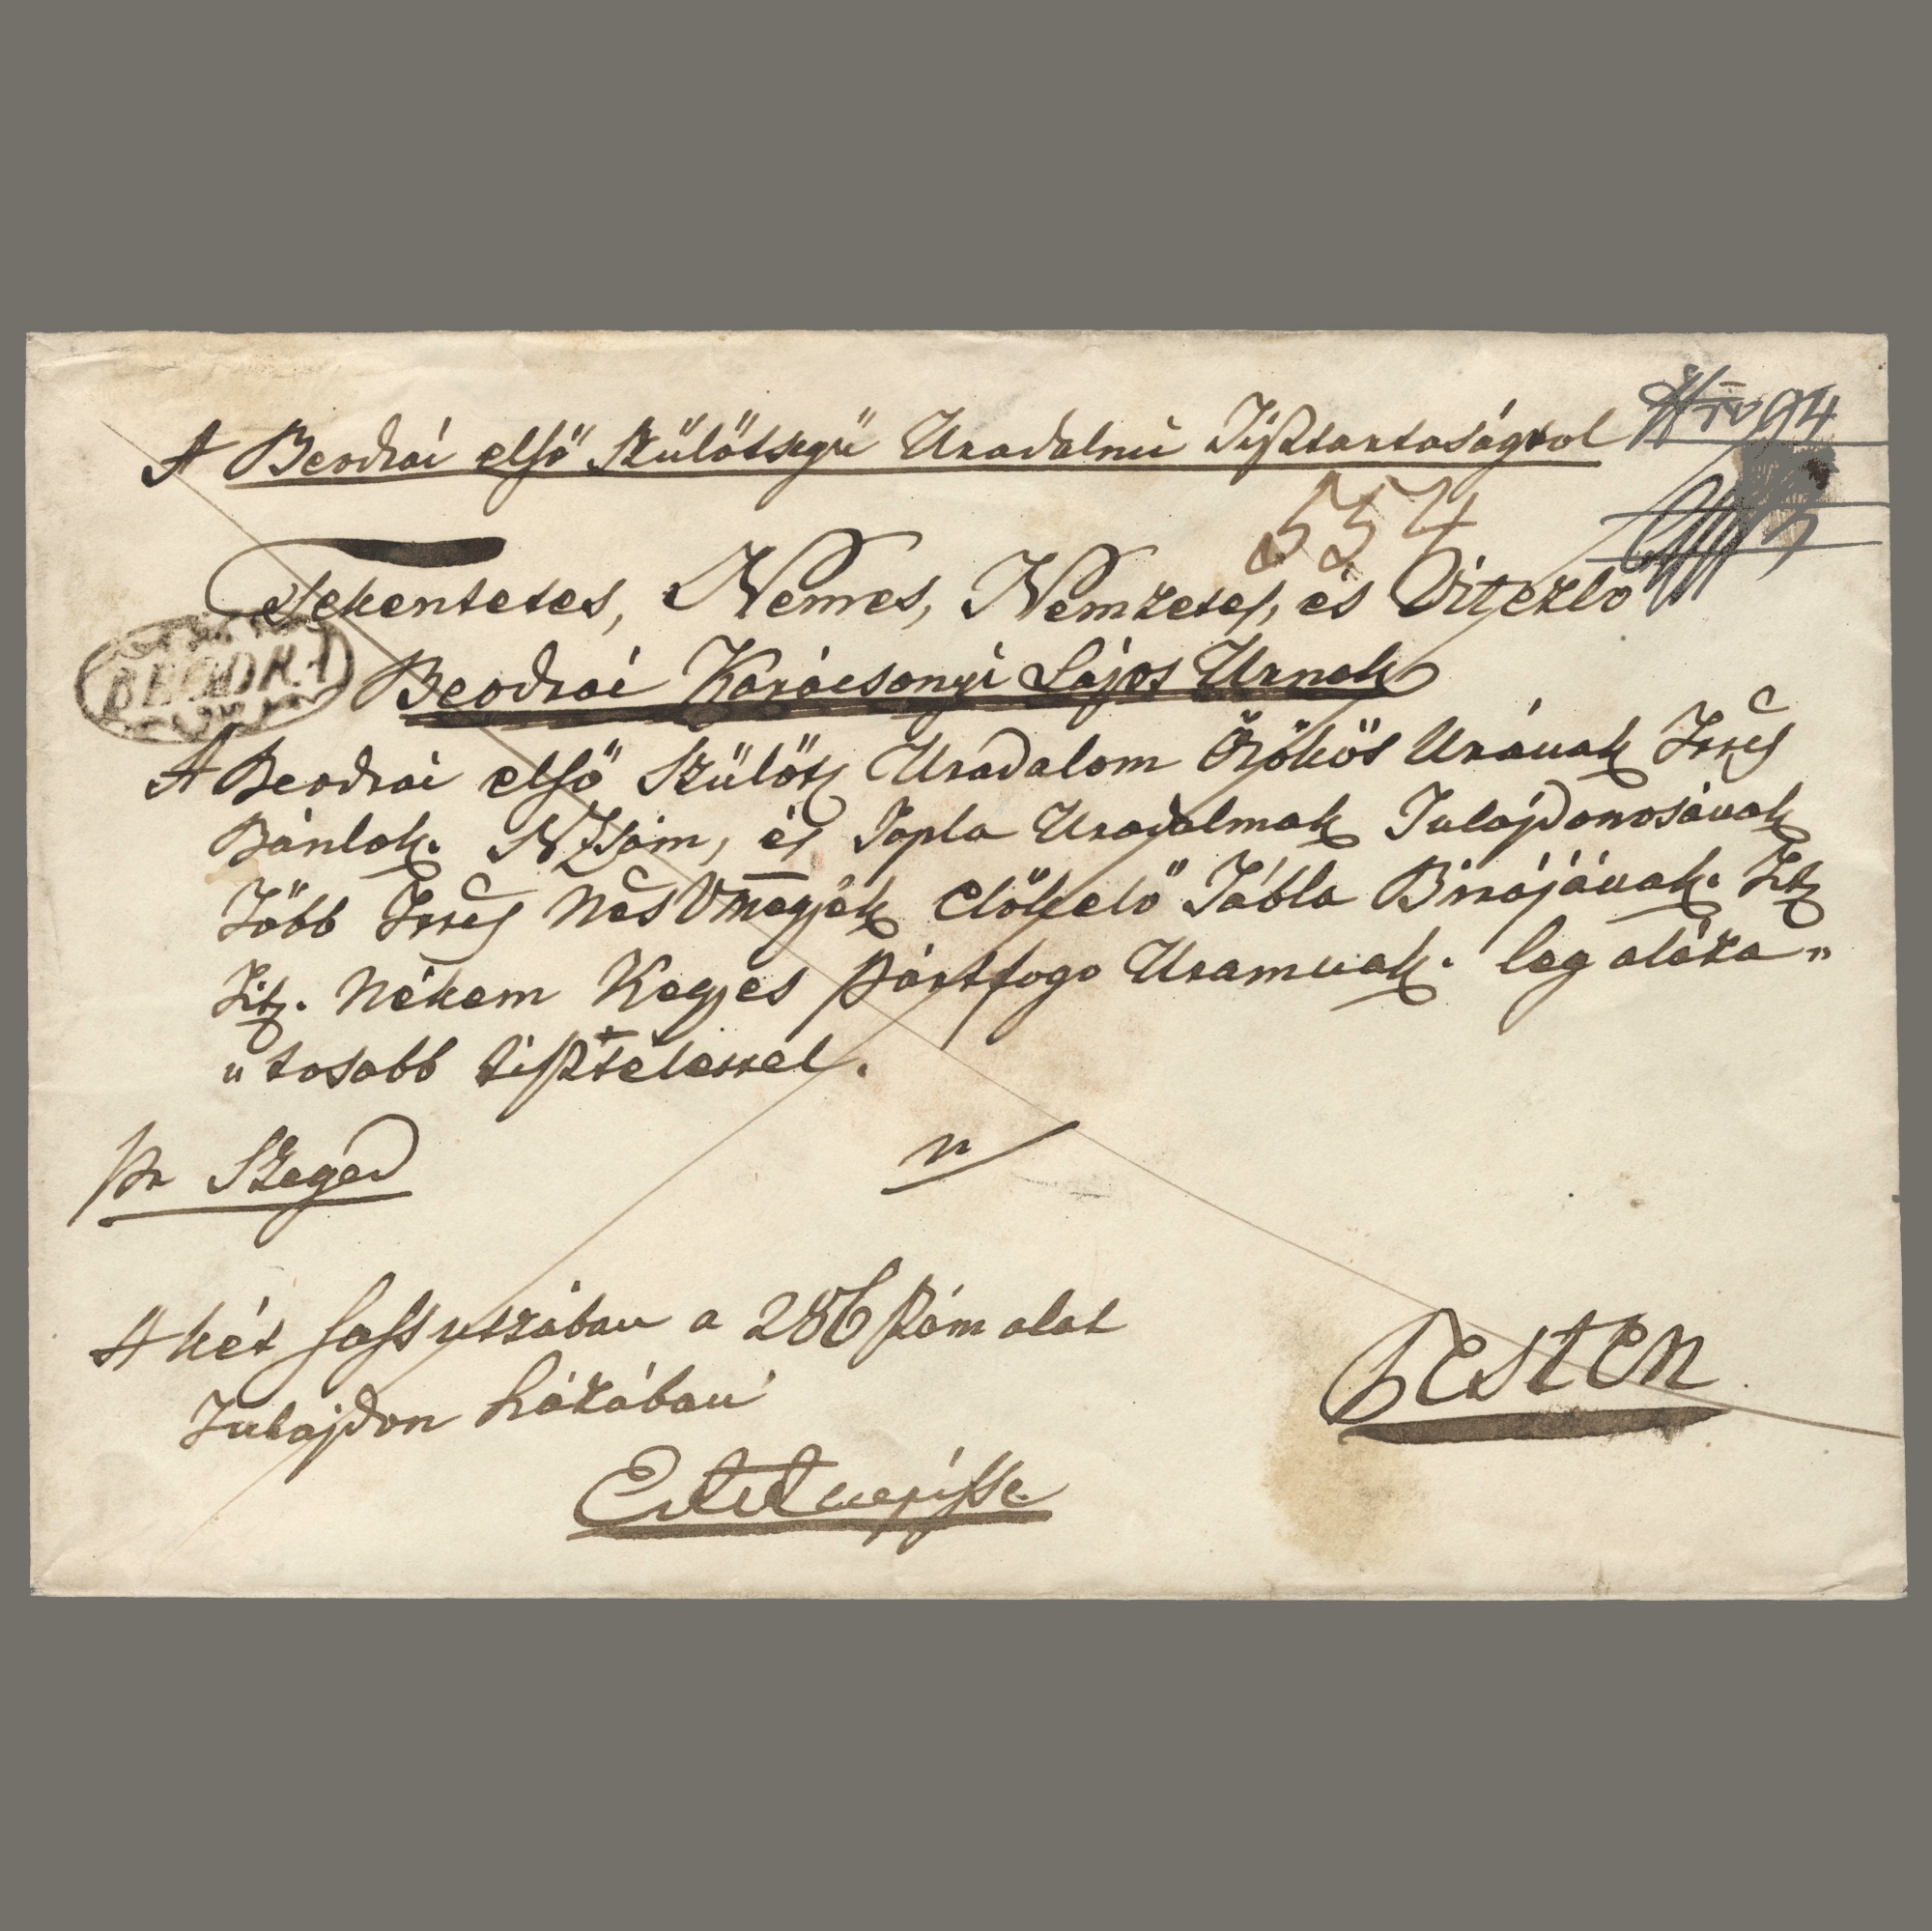 A Beodrai első Szülötsegü Uradalmi Tisztartoságtol
554
94
Tekentetes, Nemes, Nemzetes, és Vitezlö
BEODRA
Beodrai Karácsonyi Lájos Urnak
A Beodrai elsö Szülöts Uradalom Örökös Uránák
Bánlok. NZsám, és Topla Uradalmak Tulájdonosának
Több Nes Vmegyék elökelö Tábla Birájának. Titt
Titt. Nékem Kegyes Pártfogo Uramnak. leg aláza„
„tosabb tisztelettel.
pr Szeged
A két sass utzában a 286 szám alat
Tulajdon házában
Pesten